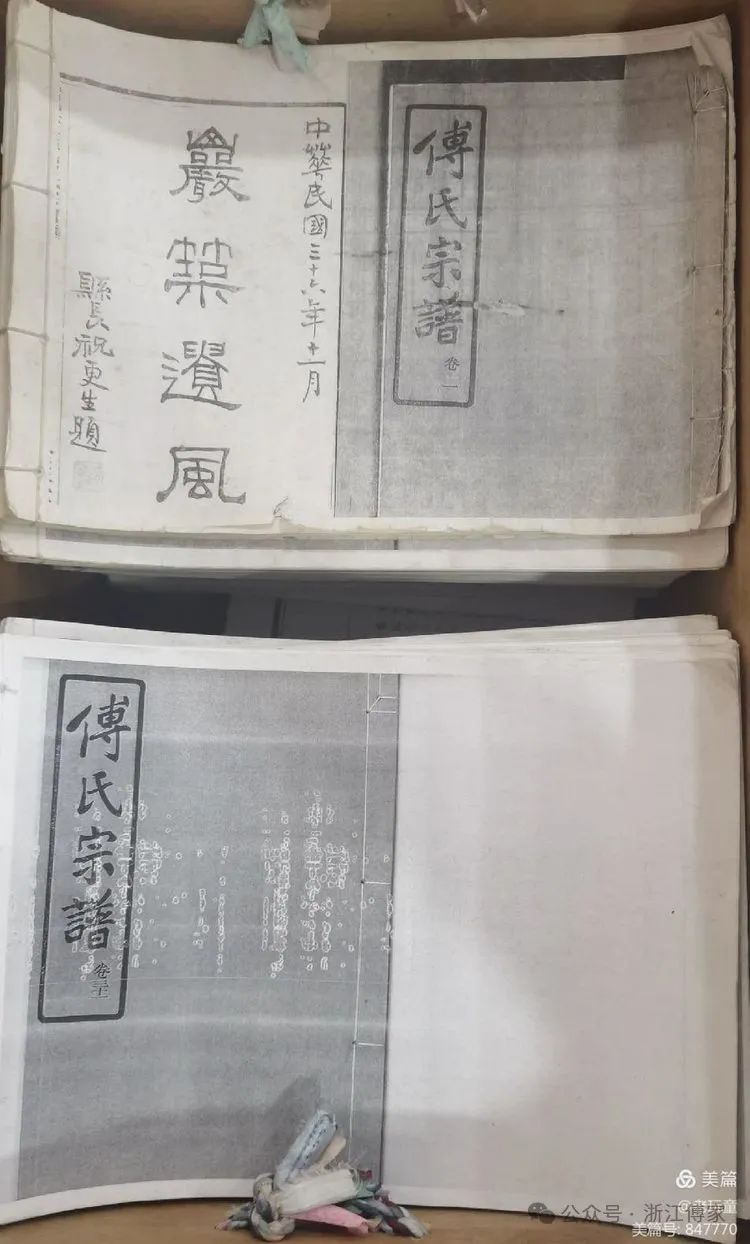 傅氏宗譜
卷一
中華民國三十六年十一月
巖築遺風
縣長祝更生題
傅氏宗譜
美篇
公众号·浙江傅家
美篇号: 847770